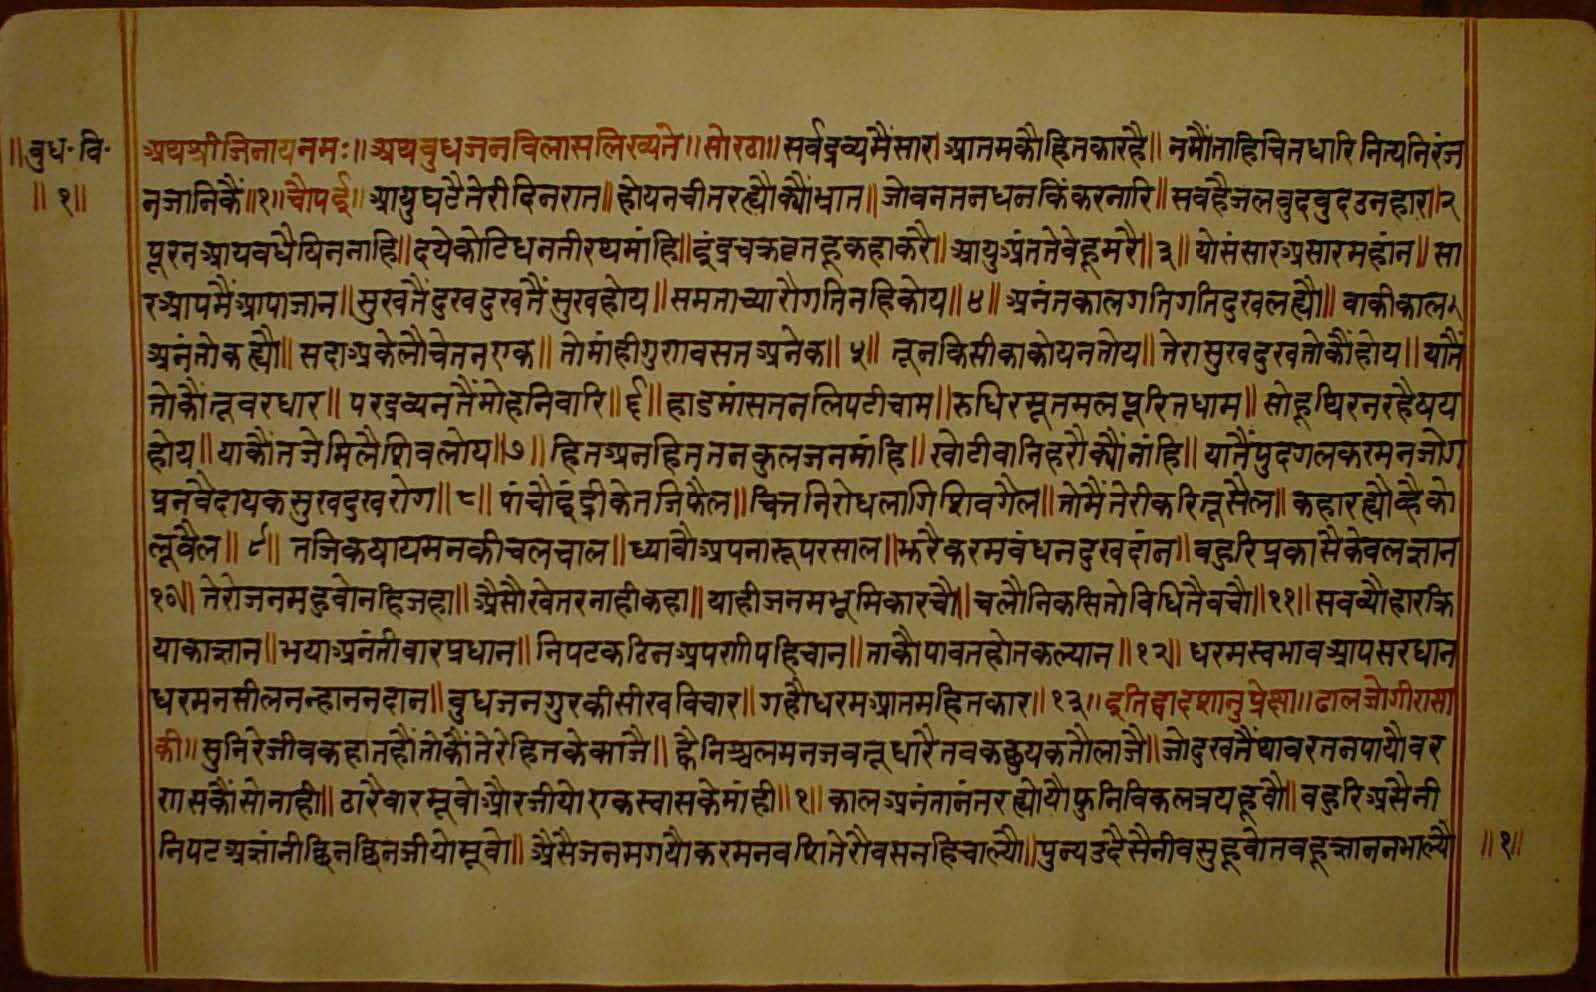 ॥बुध॰वि॰
॥१॥
अथश्रीजिनायनमः॥अथबुधजनविलासलिख्यते॥सोरठा॥सर्वद्रव्यमैंसार।आतमकौहितकारहै॥नमौंताहिचितधारिनित्यनिरंज
नजानिकैं॥१॥चौपई॥आयुघटैतेरीदिनरात॥होयनचीतरह्यौक्यौंभ्रात॥जोवनतनधनकिंकरनारि॥सवहैजलवुदवुदउनहारा॥२
पूरनआयवधैयिननाहि॥दयेकोटिधनतीरथमांहि॥इंद्रचक्रवृतहूकहाकरै॥आयुअंततेवेहूमरै॥३॥योसंसारअसारमहांन॥सा
रआपमैंआपाजान॥सुखतैंदुखदुखतैंसुखहोय॥समताच्यारौगतिनहिकोय॥४॥अनंतकालगतिगतिदुखलह्यौ॥वाकीकाल
अनंतोकह्यौ॥सदाअकेलौचेतनएक॥तोमांहीगुणवसतअनेक॥५॥तूनकिसीकाकोयनतोय॥तेरासुखदुखतोकौंहोय॥यातैं
तोकौंतूवरधार॥परद्रव्यनतैंमोहनिवारि॥६॥हाडमांसतनलिपटीचाम॥रुधिरमूतमलपूरितधाम॥सोहूथिरनरहैषय
होय॥याकौंतजेमिलैशिवलोय॥७॥हितअनहिततनकुलजनमांहि॥खोटीवानिहरौक्यौंनांहि॥यातैंपुदगलकरमनजोग
प्रनवैदायकसुखदुखरोग॥८॥पांचौइंद्रीकेतजिफैल॥चितनिरोधलागिशिवगैल॥तोमैंतेरीकरितूसैल॥कहारह्यौव्हैको
लूवैल॥९॥तजिकषायमनकीचलचाल॥ध्यावौअपनारूपरसाल॥झरैकरमवंधनदुखदांन॥वहुरिप्रकासैकेवलज्ञान
१०॥तेरोजनमहुवोनहिजहा॥अैसौखेतरनाहीकहा॥याहीजनमभूमिकारचौ॥चलौनिकसितोविधितैवचौ॥११॥सवव्यौहारक्रि
याकाज्ञान॥भयाअनंतीवारप्रधान॥निपटकठिनअपणीपहिचान॥ताकौपावतहोतकल्यान॥१२॥धरमस्वभावआपसरधान
धरमनसीलनन्हाननदान॥वुधजनगुरकीसीखविचार॥गहौधरमआतमहितकार॥१३॥इतिद्वादशानुप्रेक्षा॥ढालजोगीरासा
की॥सुनिरेजीवकहातहौंतोकौंतेरेहितकेकाजै॥ह्वैनिश्चलमनजवतूधारैतवकछुयकतौलाजै॥जोदुखतैंथावरतनपायौवर
णसकौंसोनाही॥ठारैवारमूवोऔरजीयोएकस्वासकेमांही॥१॥कालअनंतानंतरह्योयौफुनिविकलत्रयहूवौ॥वहुरिअसैनी
निपटअज्ञांनीछिनछिनजीयोमूवो॥अैसैजनमगयौकरमनवशितेरौवसनहिचाल्यौ॥पुन्यउदैसैनीवसुहूवोतवहूज्ञाननभाल्यौ
॥१॥